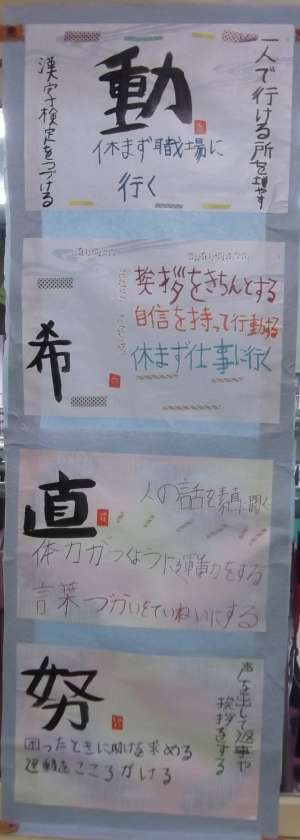 一人で行ける所を増やす
動
休まず職場に
行く
漢字検定をつづける
希
挨拶をきちんとする
自信を持って行動する
休まず仕事に行く
直
人の話を素直に聞く
体力がつくように運動をする
言葉づかいをていねいにする
努
声を出して返事や
挨拶をする
困ったときに助けを求める
運動をこころがける